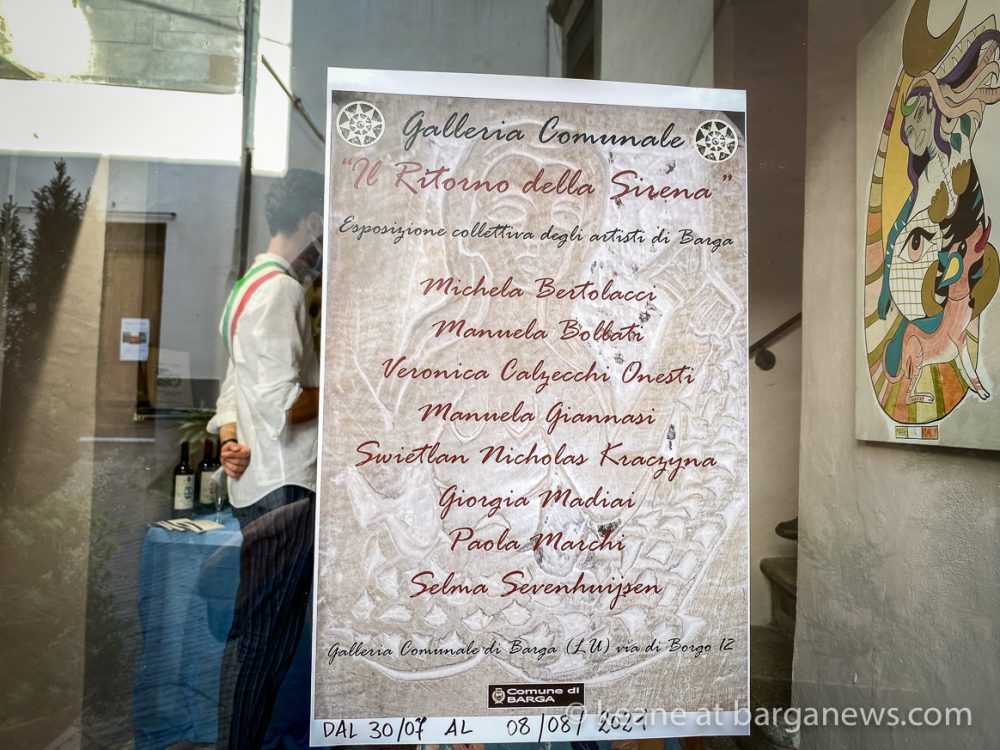 Galleria Comunale
"Il Ritorno della Sirena"
Esposizione collettiva degli artisti di Barga
Michela Bertolacci
Manuela Bollati
Veronica Calzecchi Onesti
Manuela Giannasi
Swietlan Nicholas Kraczyna
Giorgia Madiai
Paola Marchi
Selma Sevenhuijsen
Galleria Comunale di Barga (LU) via di Borgo 12
Comune di
BARGA
DAL 30/07 AL 08/08/2021
© keane at barganews.com